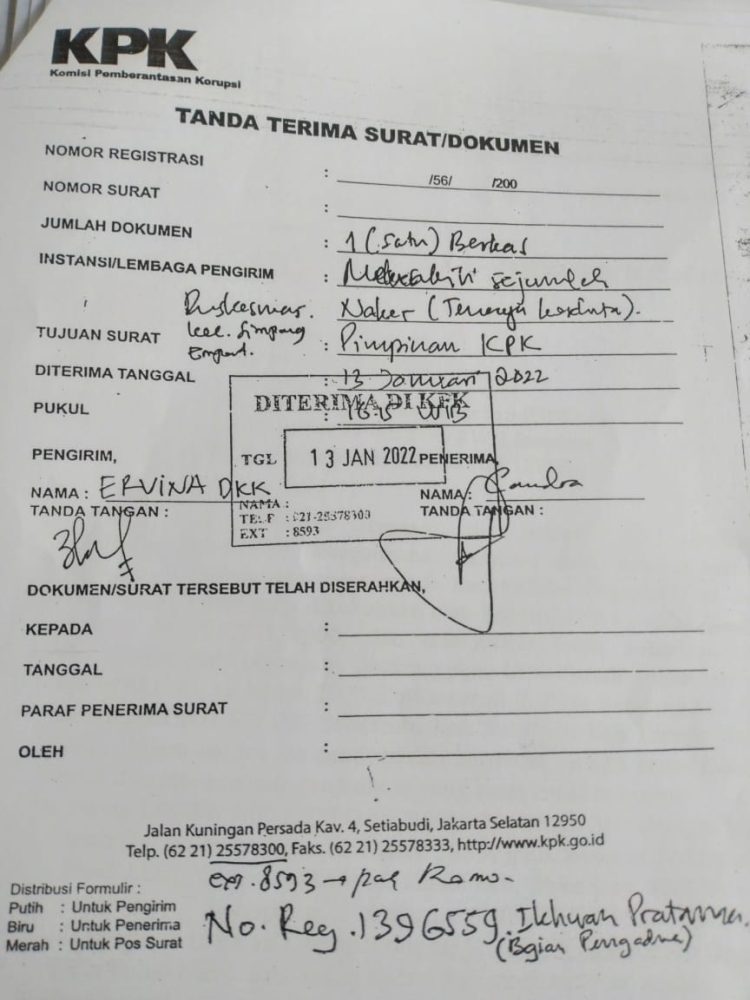 KPK
Komisi Pemberantasan Korupsi
TANDA TERIMA SURAT/DOKUMEN
NOMOR REGISTRASI : /56/ /200
NOMOR SURAT :
JUMLAH DOKUMEN : 1 (satu) Berkas
INSTANSI/LEMBAGA PENGIRIM : sejumlah
Puskesmas. Naker (Tenaga
kec. Simpang
Empat.
TUJUAN SURAT : Pimpinan KPK
DITERIMA TANGGAL : 13 Januari 2022
PUKUL : WIB
DITERIMA DI KPK
TGL 13 JAN 2022
NAMA :
TELF : 021-25578300
EXT : 8593
PENGIRIM, PENERIMA
NAMA : ERVINA DKK NAMA : Candra
TANDA TANGAN : TANDA TANGAN :
DOKUMEN/SURAT TERSEBUT TELAH DISERAHKAN,
KEPADA :
TANGGAL :
PARAF PENERIMA SURAT :
OLEH :
Jalan Kuningan Persada Kav. 4, Setiabudi, Jakarta Selatan 12950
Telp. (62 21) 25578300, Faks. (62 21) 25578333, http://www.kpk.go.id
ext. 8593 → pak Romo.
Distribusi Formulir :
Putih : Untuk Pengirim
Biru : Untuk Penerima
Merah : Untuk Pos Surat
No. Reg. 1396559. Ikhwan Pratama.
(Bgian Pengadua)